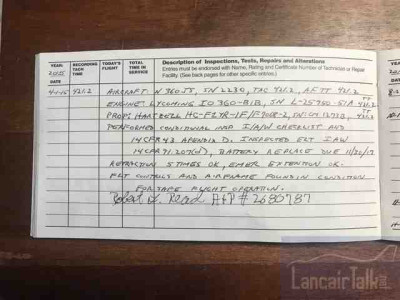 YEAR:
2015
DATE
RECORDING
TACH
TIME
TODAY'S
FLIGHT
TOTAL
TIME IN
SERVICE
Description of Inspections, Tests, Repairs and Alterations
Entries must be endorsed with Name, Rating and Certificate Number of Technician or Repair
Facility. (See back pages for other specific entries.)
4-1-15 421.2 AIRCRAFT N360JS, SN L230, TAC 421.2, AFTT 421.2
ENGINE: LYCOMING IO 360-B1B, SN L-25980-51A 421.2
PROP: HARTZELL HC-F2TR-1F/F 7068-2,
PERFORMED CONDITIONAL INSP I/A/W CHECKLIST AND
14 CFR 43 APENDIX D. INSPECTED ELT IAW
14 CFR 91.207(D), BATTERY REPLACE DUE 11/20/17
RETRACTION 5 TIMES OK, EMER EXTENTION OK.
FLT CONTROLS AND AIRFRAME FOUND IN CONDITION
FOR SAFE FLIGHT OPERATION.
Robert D. Read A+P # 2680787
YEAR
20
DATE
LancairTalk